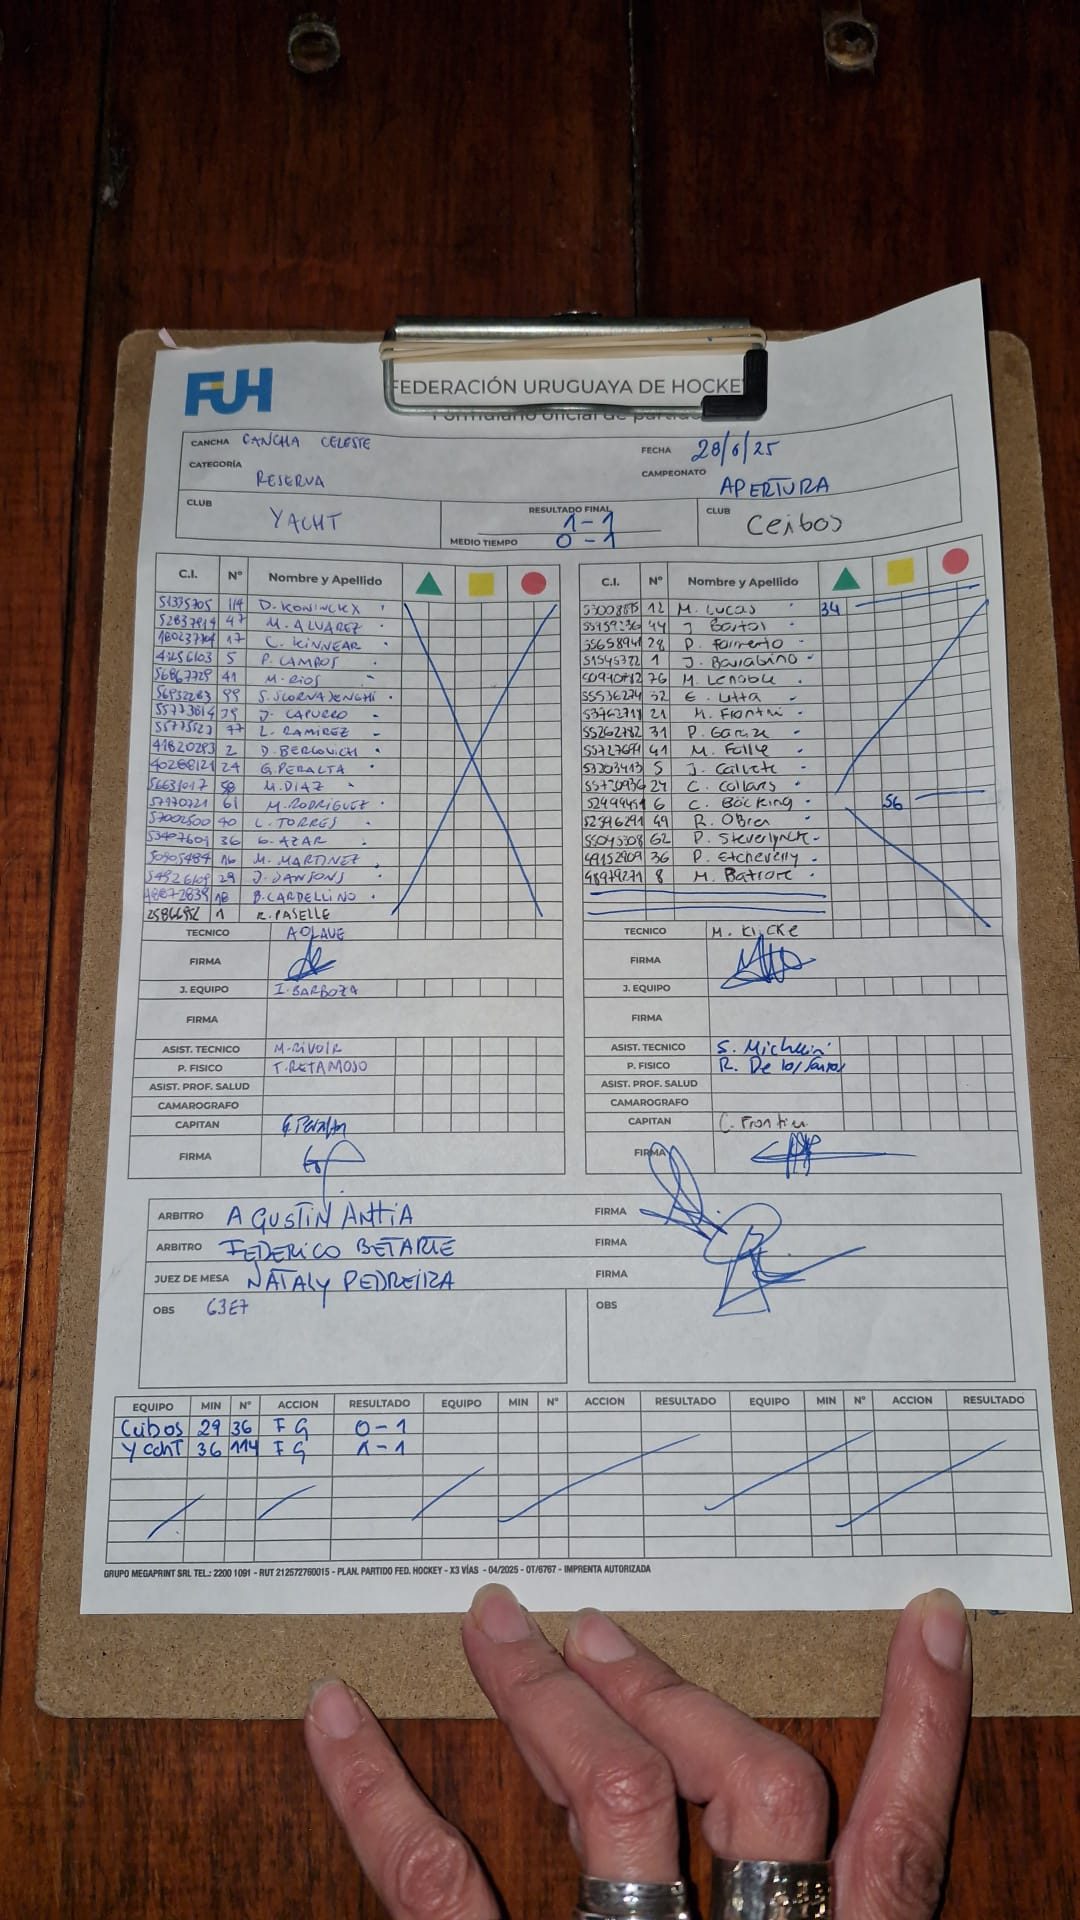 FUH
FEDERACIÓN URUGUAYA DE HOCKE
Formulario oficial de partido
CANCHA CANCHA CELESTE
FECHA 28/6/25
CATEGORÍA RESERVA
CAMPEONATO APERTURA
CLUB YACHT
RESULTADO FINAL 1-1
MEDIO TIEMPO 0-1
CLUB Ceibos
C.I. Nº Nombre y Apellido
51335705 114 D. KONINCKX
47 M. ALVAREZ
17 C. KINNEAR
5 P. CAMPOS
56867729 41 M. RIOS
99
J. CAPURRO
77 L. RAMIREZ
41820293 2 D. BERCOVICH
40288121 24 G. PERALTA
56631017 M. DIAZ
57970721 61 M. RODRIGUEZ
57002500 40 L. TORRES
53407601 36 AZAR
50905484 16 M. MARTINEZ
29 J. JANSONS
48872839 18 B. CARDELLINO
1 R. PASELLE
TECNICO
FIRMA
J. EQUIPO I. BARBOZA
FIRMA
ASIST. TECNICO M. RIVOIR
P. FISICO T. RETAMOSO
ASIST. PROF. SALUD
CAMAROGRAFO
CAPITAN G. Peralta
FIRMA
C.I. Nº Nombre y Apellido
12 M. Lucas 34
44
28
51545722 1 J. Barrabino
50910782 76 M. Lenoble
55536274 32 E. Litta
53762718 21 M. Frontini
55262782 31
55727691 41
53203413 5
55730936 27
52499451 6 C. Böcking 56
52396291 49 R. OBrien
55045308 62 P. Steverlynck
49152909 36 P. Etchevelly
48979271 8
TECNICO M. Klicke
FIRMA
J. EQUIPO
FIRMA
ASIST. TECNICO S. Michelini
P. FISICO R. De los Santos
ASIST. PROF. SALUD
CAMAROGRAFO
CAPITAN
FIRMA
ARBITRO AGUSTIN ANTTIA
FIRMA
ARBITRO FEDERICO BETARTE
FIRMA
JUEZ DE MESA NATALY PEDREIRA
FIRMA
OBS 63E7
OBS
EQUIPO MIN Nº ACCION RESULTADO EQUIPO MIN Nº ACCION RESULTADO EQUIPO MIN Nº ACCION RESULTADO
Ceibos 29 36 FG 0-1
Yacht 36 114 FG 1-1
GRUPO MEGAPRINT SRL TEL.: 2200 1091 - RUT 212572760015 - PLAN. PARTIDO FED. HOCKEY - X3 VÍAS - 04/2025 - OT/6767 - IMPRENTA AUTORIZADA